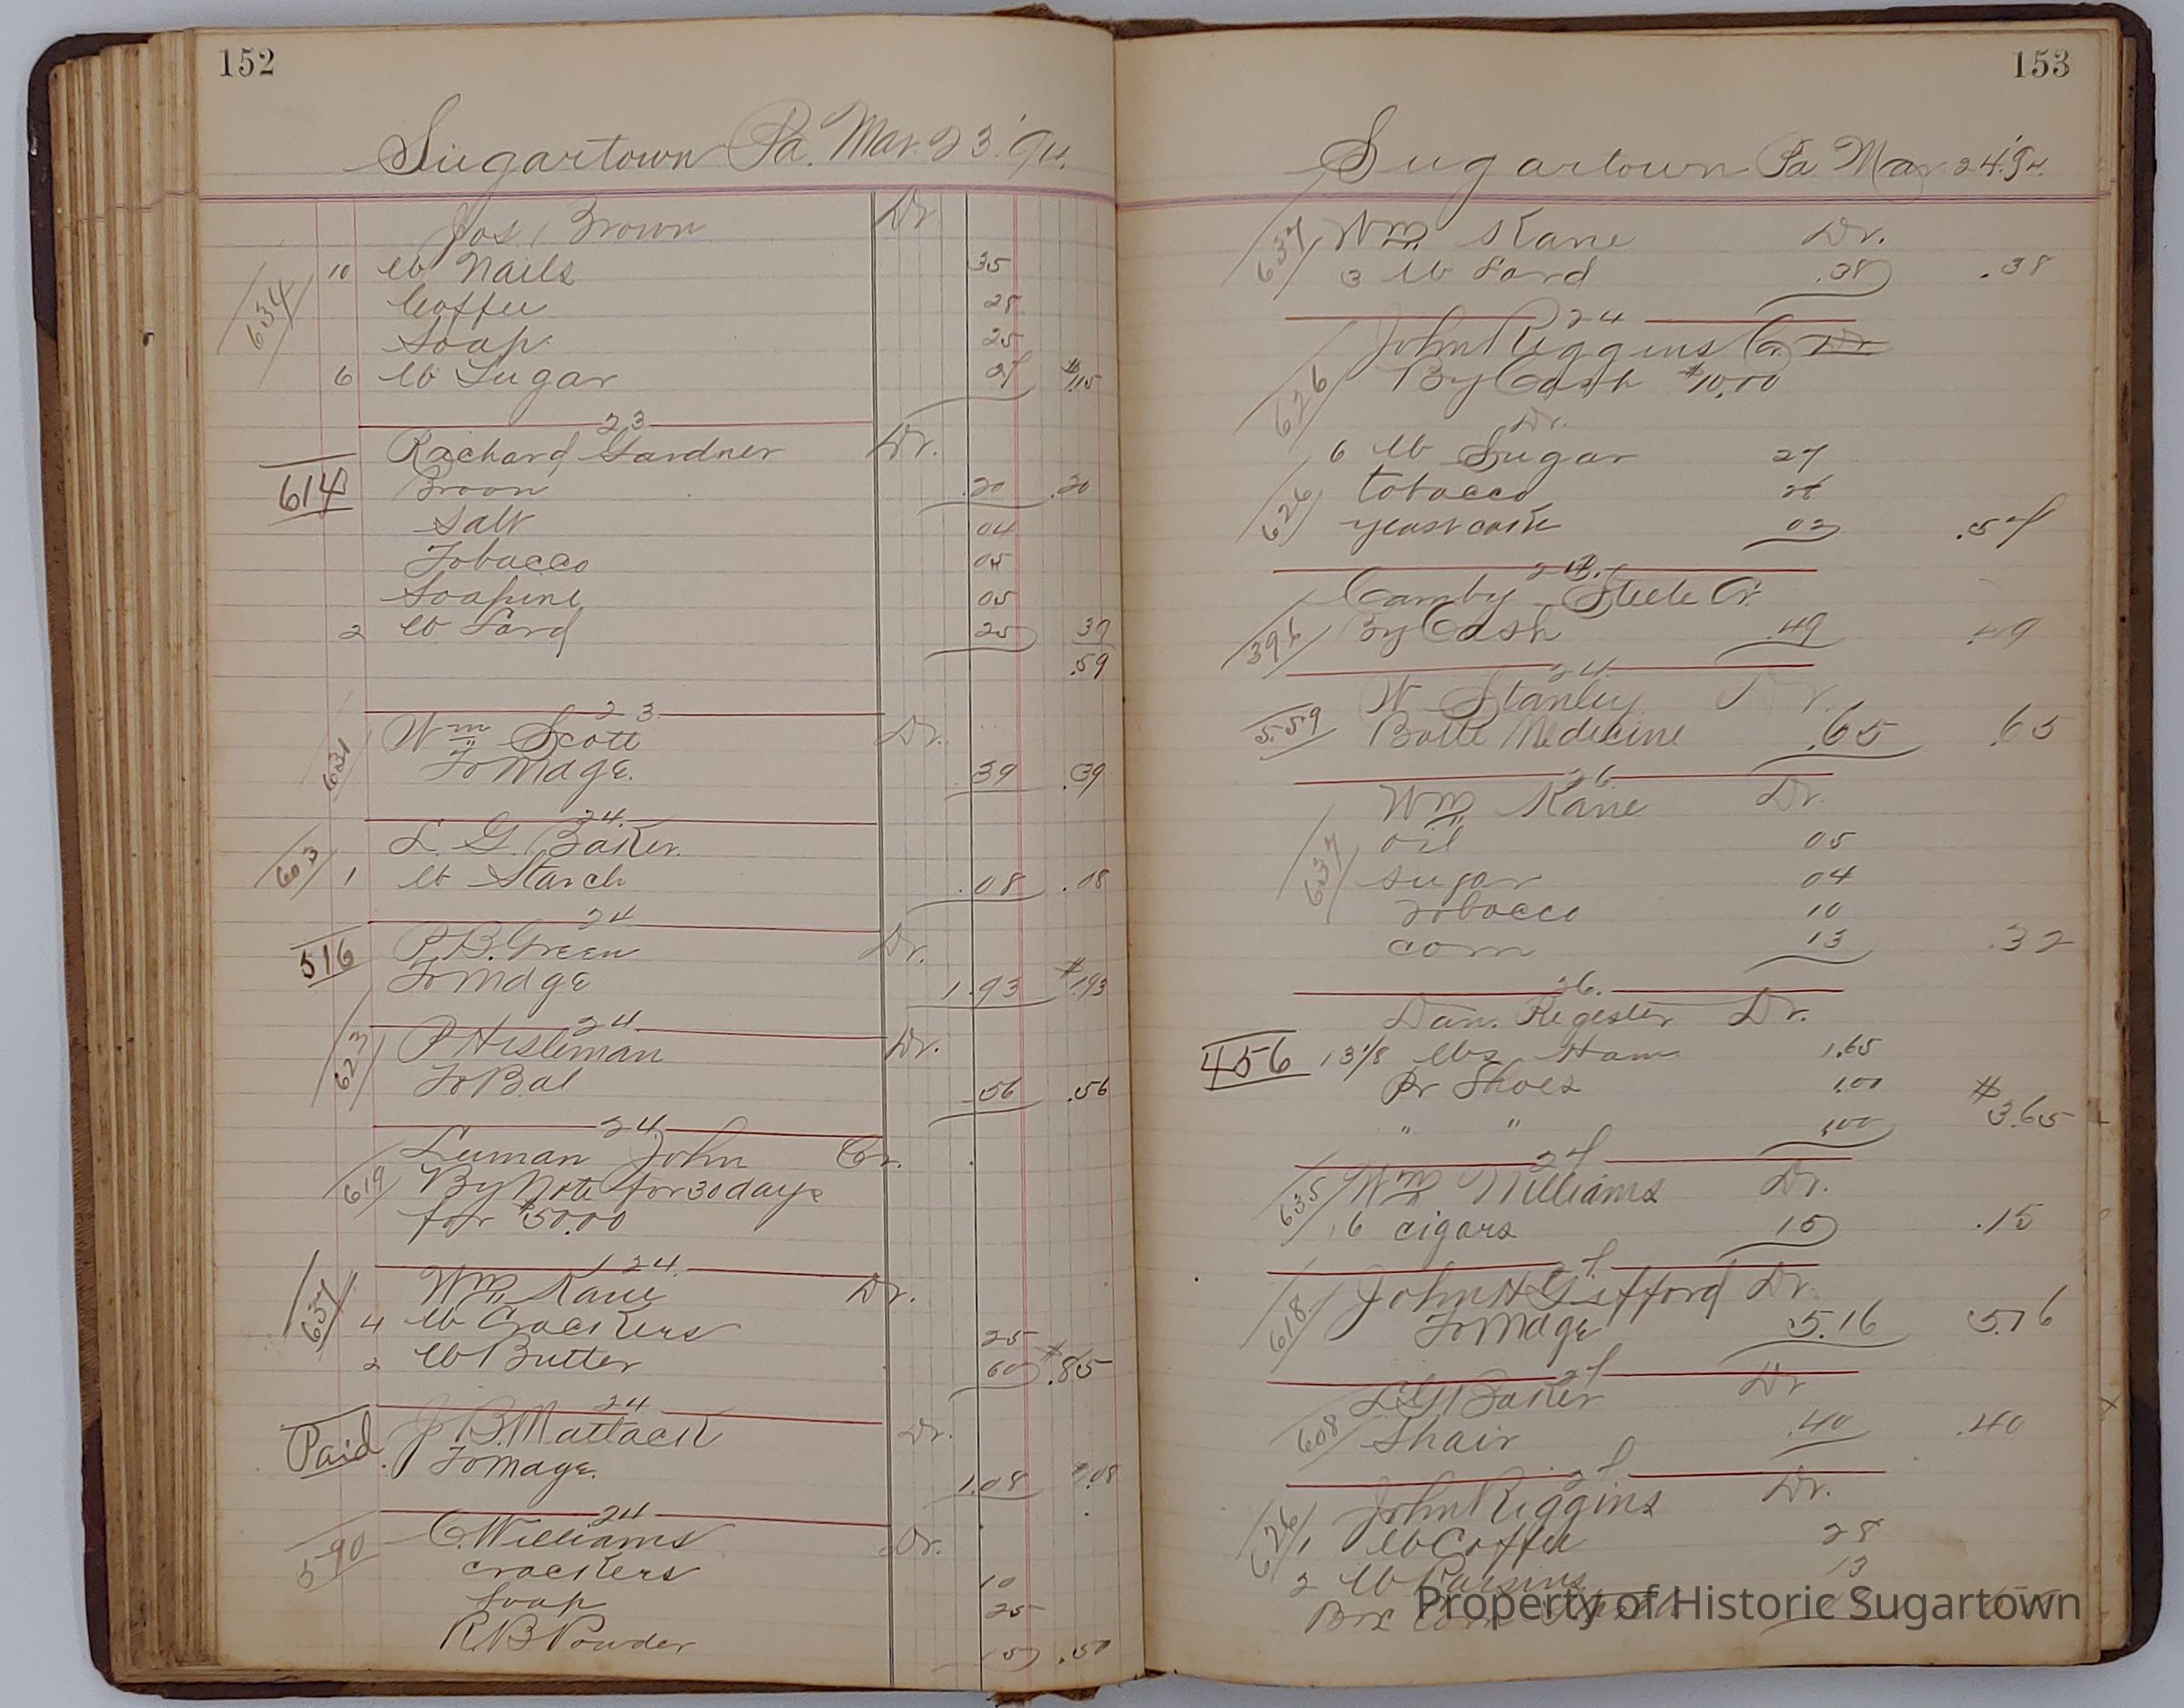 152
Sugartown Pa. Mar. 23. '94.
Jos. Brown Dr.
634
10 lb Nails 35
Coffee 28
Soap 25
6 lb Sugar 27 $1.15
23
Richard Gardner Dr.
614 Broom .20 .20
Salt 04
Tobacco 05
Soapine 05
2 lb Lard 25 39
.59
23
Wm Scott Dr.
631 To Mdge. .39 .39
24.
L. G. Baker.
603 1 lb Starch .08 .08
24
516 P. B. Green Dr.
To Mdge 1.93 $1.93
24
623 P Hisleman Dr.
To Bal .56 .56
24
Luman John Cr.
619 By Note for 30 days
for $50.00
24.
637 Wm Kane Dr.
4 lb Crackers 25
2 lb Butter 60 $.85
24
Paid J B. Matlack Dr.
To Mdge. 1.08 1.08
24
590 C. Williams Dr.
crackers 10
Soap 25
R B Powder 15 .50
153
Sugartown Pa Mar 24. '94.
637 Wm Kane Dr.
3 lb Lard .38 .38
24
John Riggins Cr. Dr.
626 By Cash $10.00
Dr.
6 lb Sugar 27
626 tobacco
yeast cake 02 .57
24.
Camby Steele Cr.
396 By Cash .49 .49
24
W Stanley Dr.
559 Bottle Medicine .65 .65
26
Wm Kane Dr.
637 oil 05
sugar 04
Tobacco 10
corn 13 .32
26.
Dan. Register Dr.
456 13 1/8 lbs Ham 1.65
Pr Shoes 1.00
" " 1.00 $3.65
27
635 Wm Williams Dr.
6 cigars 15 .15
27
618. John H Gifford Dr.
To Mdge 5.16 5.16
27
L G Baker Dr
608 Shair .40 .40
27
John Riggins Dr.
626 1 lb Coffee 28
2 lb Raisins 13
Box Corn
Property of Historic Sugartown